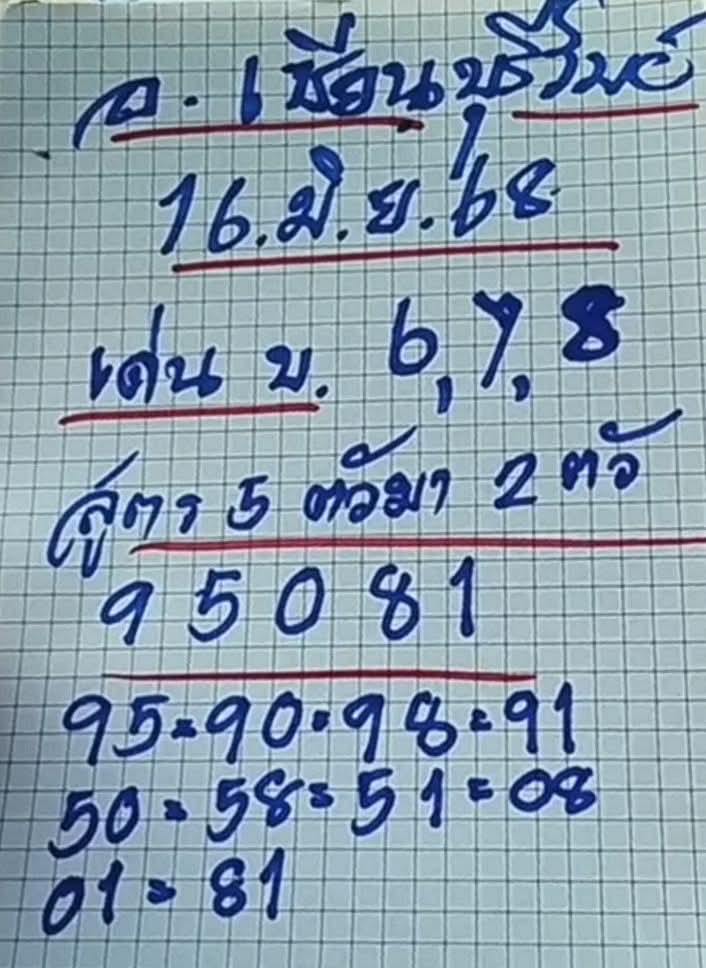 อ. เซียนบุรีรัมย์
16.มิ.ย.68
เด่น บ. 6,7,8
สูตร 5 ตัวมา 2 ตัว
9 5 0 8 1
95=90=98=91
50=58=51=08
01=81